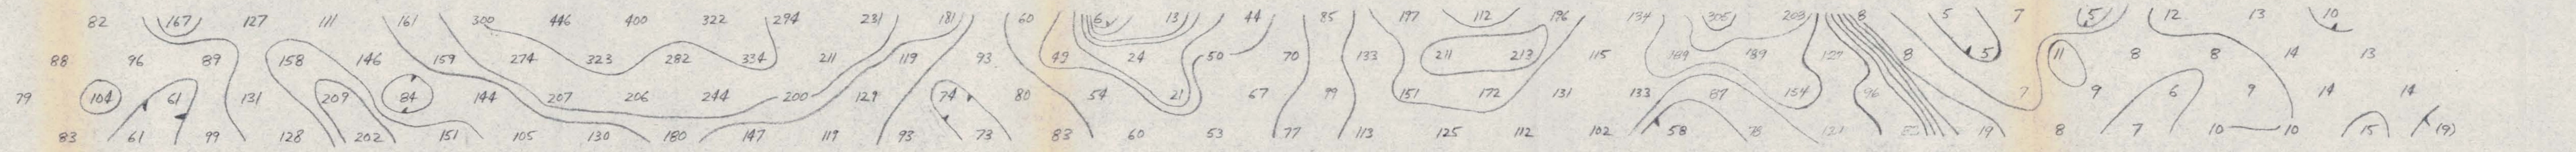 82 167 127 111 161 300 446 400 322 294 231 181 60 6 13 44 85 197 112 196 134 305 203 8 5 7 5 12 13 10
88 96 89 158 146 159 274 323 282 334 211 119 93 49 24 50 70 133 211 213 115 189 139 127 8 5 11 8 8 14 13
79 104 61 131 209 84 144 207 206 244 200 129 74 80 54 21 67 99 151 172 131 133 87 154 96 7 9 6 9 14 14
83 61 99 128 202 151 105 130 180 147 119 93 73 83 60 53 77 113 125 112 102 58 78 19 8 7 10 10 15 (9)